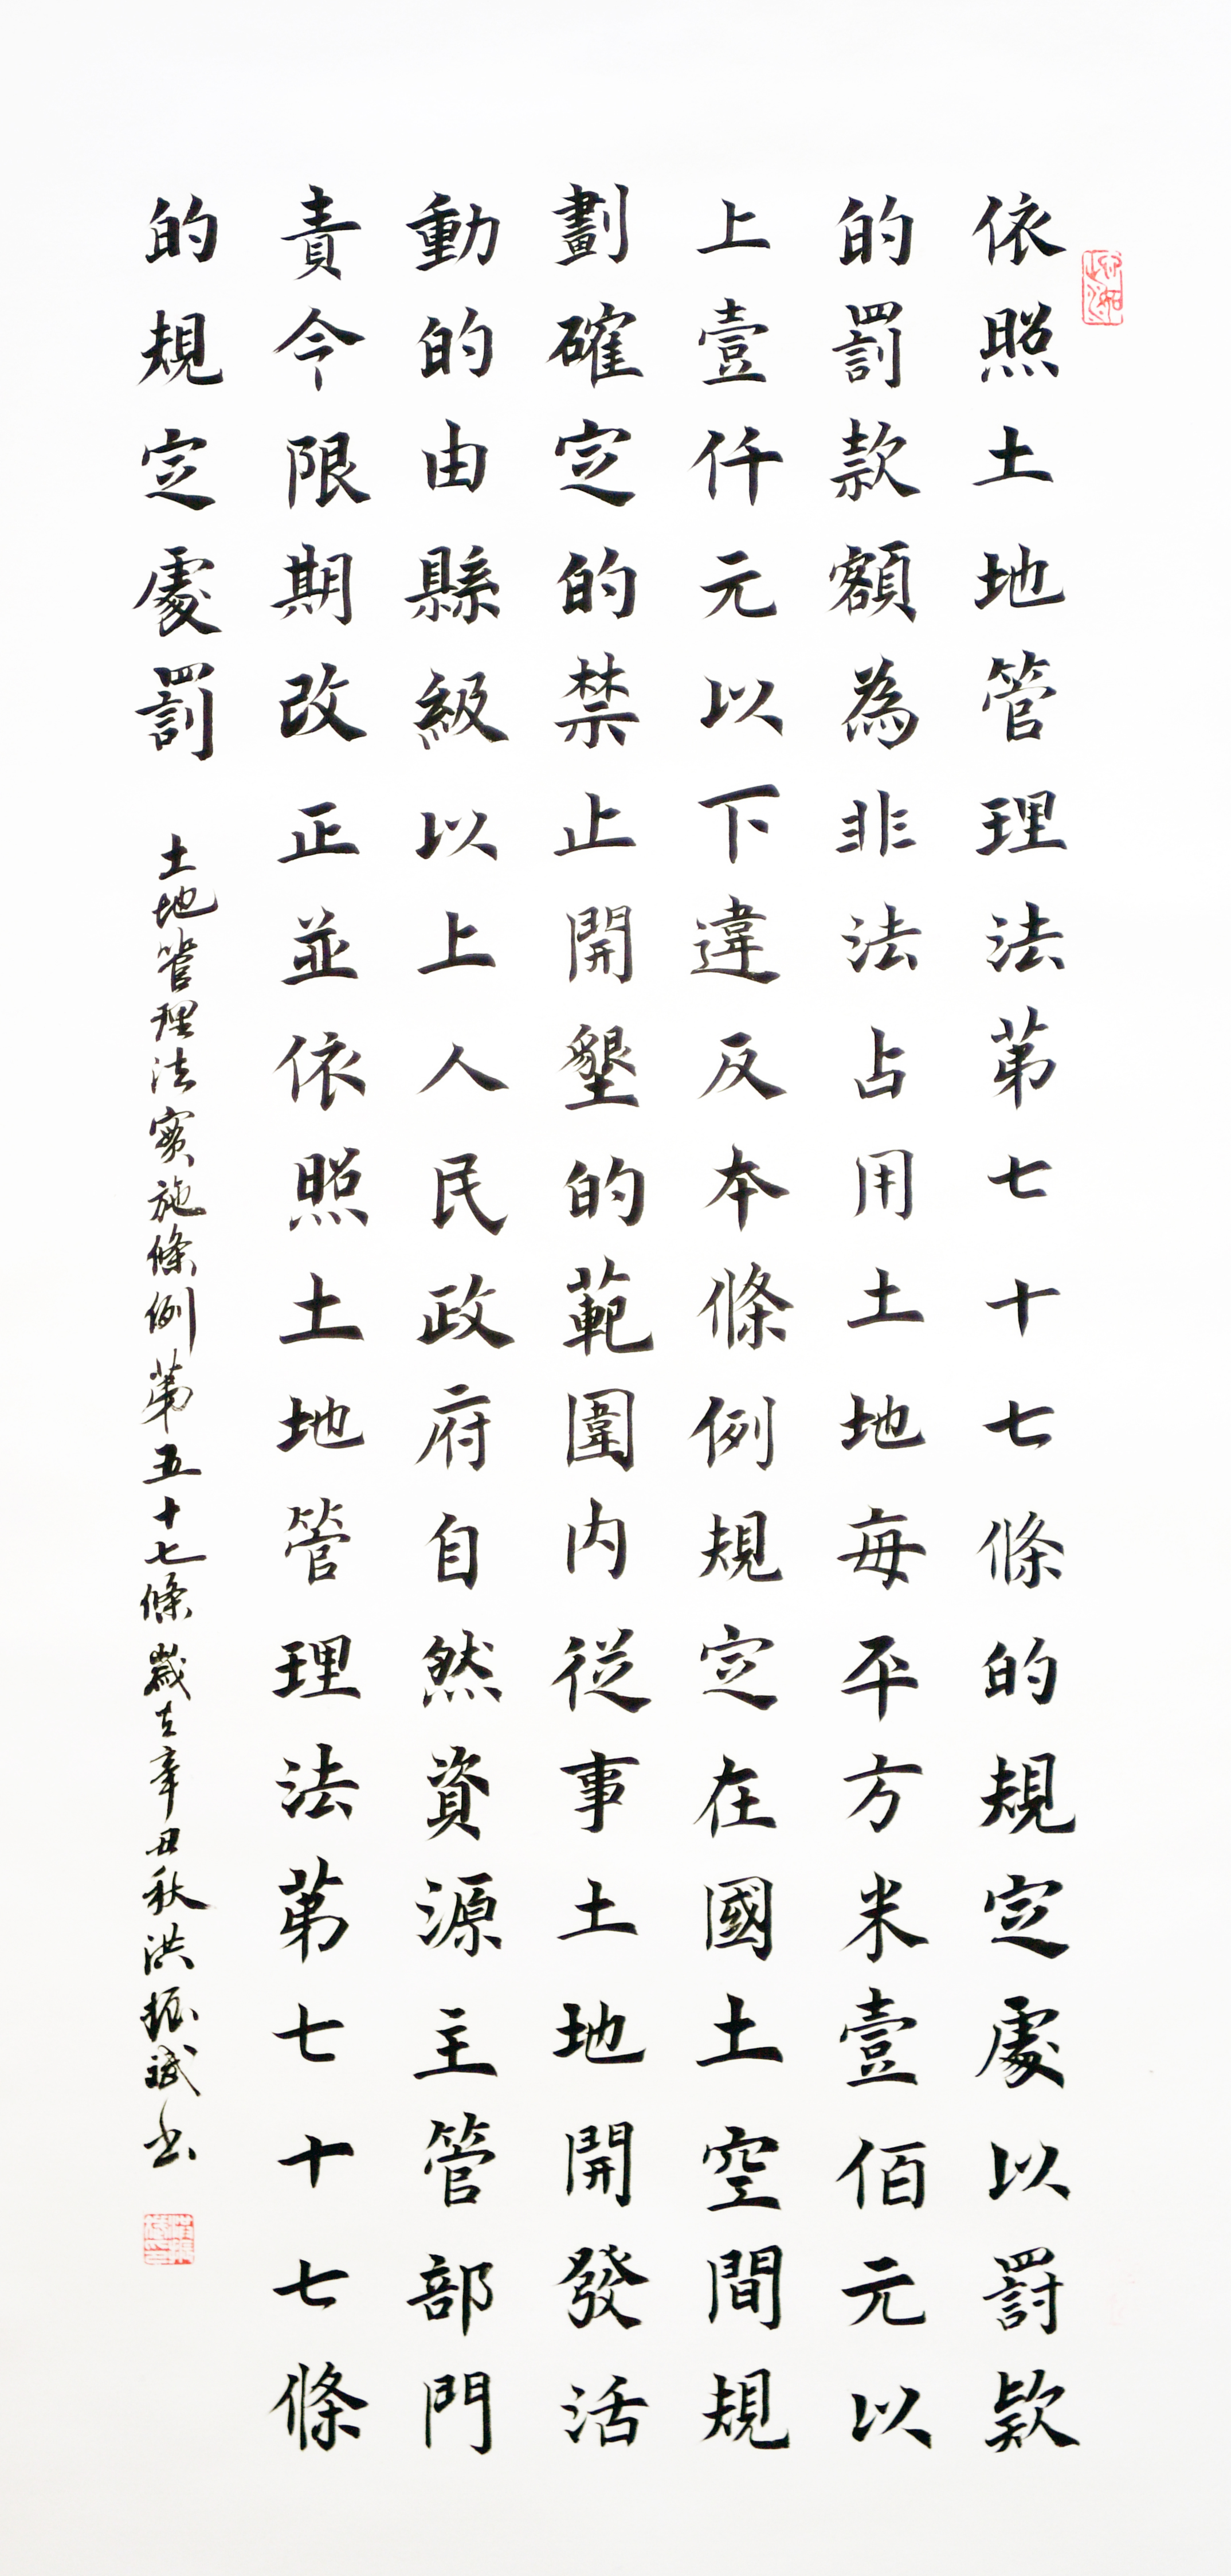 依照土地管理法第七十七條的規定處以罸款
的罰款額為非法占用土地每平方米壹佰元以
上壹仟元以下違反本條例規定在國土空間規
劃確定的禁止開墾的範圍内從事土地開發活
動的由縣級以上人民政府自然資源主管部門
責令限期改正並依照土地管理法第七十七條
的規定處罰
土地管理法實施條例第五十七條歲在辛丑秋洪振斌書